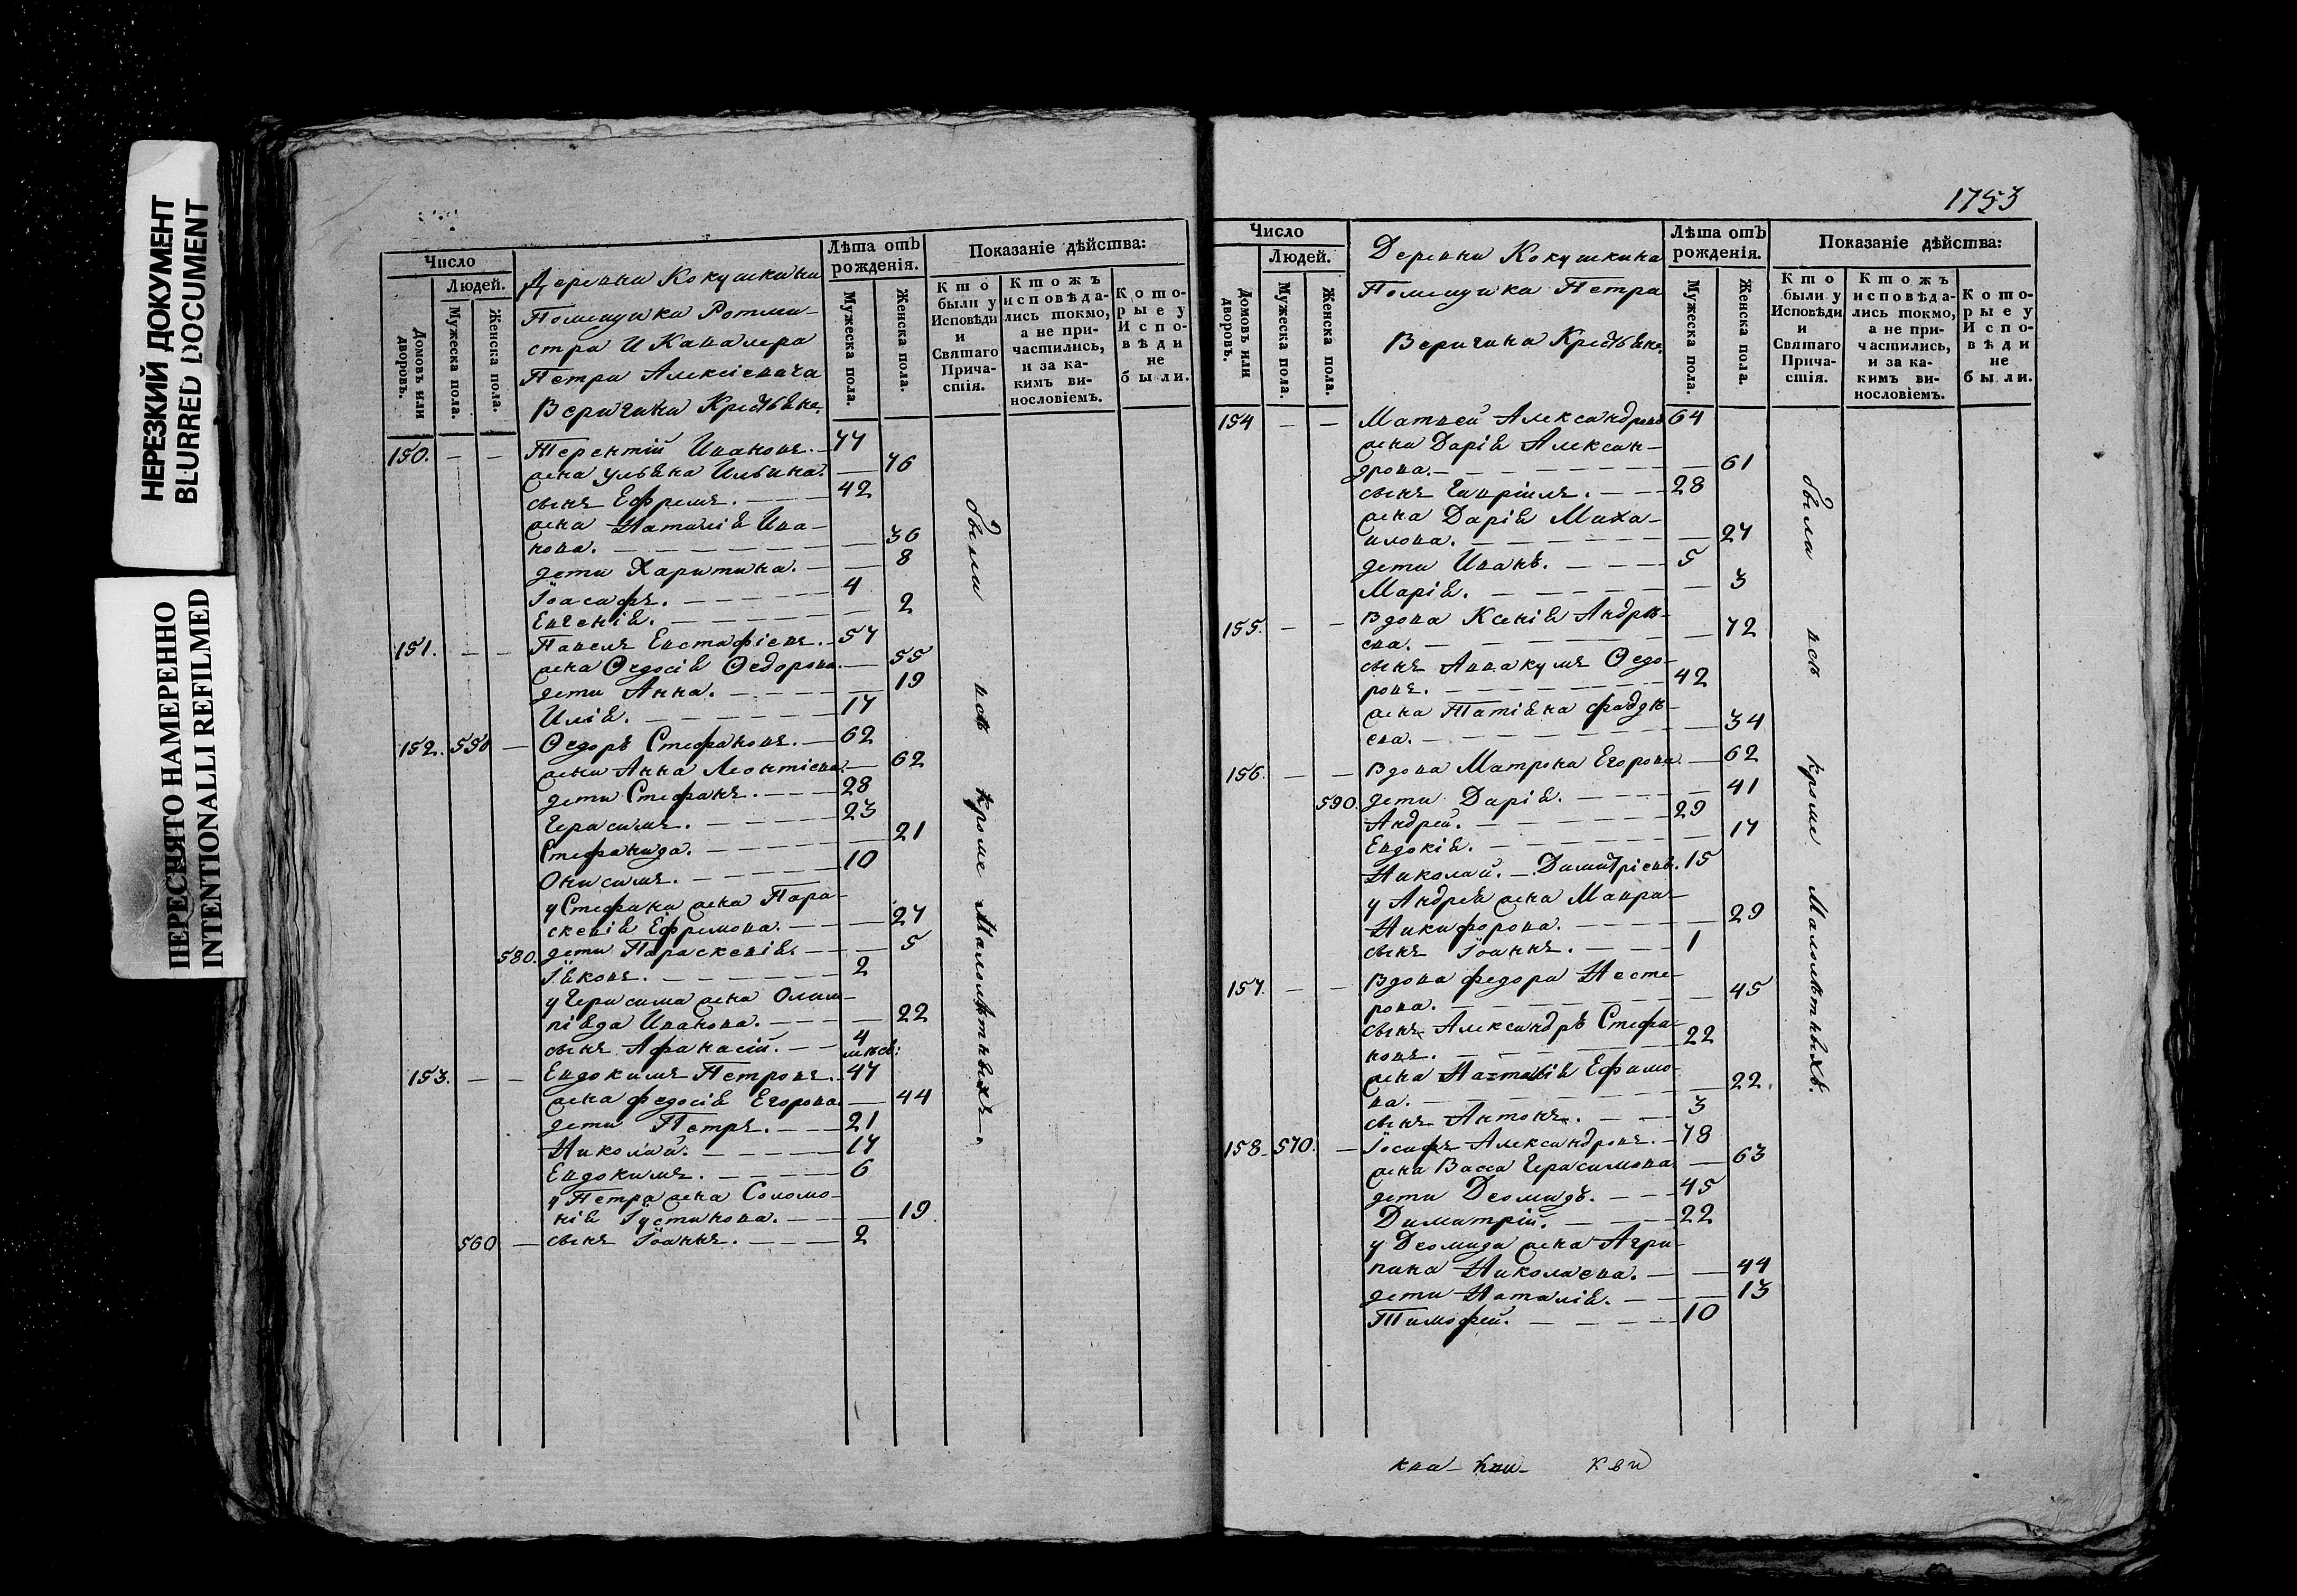 НЕРЕЗКИЙ ДОКУМЕНТ
BLURRED DOCUMENT
ПЕРЕСНЯТО НАМЕРЕННО
INTENTIONALLI REFILMED
Число
Людей.
Домовъ или дворовъ.
Мужеска пола.
Женска пола.
Деревни Кокушкина
Помещика Ротми-
стра и Кавалера
Петра Алексіевича
Веригина Крестьяне.
Лѣта отъ рожденія.
Мужеска пола.
Женска пола.
Показаніе дѣйства:
Кто были у Исповѣди и Святаго Прича-стія.
Ктожъ исповѣда-лись токмо, а не при-частились, и за ка-кимъ ви-нословіемъ.
Кото-рые у Испо-вѣди не были.
150. — — Терентій Ивановъ. — 77
жена Ульяна Ильина. — 76
сынъ Ефремъ. — 42
жена Наталія Ива-
нова. — 36
дети Харитина. — 8
Іоасафъ. — 4
Евгенія. — 2
151. — — Павелъ Евстафіевъ. — 57
жена Ѳедосія Ѳедорова. — 55
дети Анна. — 19
Илія. — 17
152. 550 — Ѳедоръ Стефановъ. — 62
жена Анна Леонтіева. — 62
дети Стефанъ. — 28
Герасимъ. — 23
Стефанида. — 21
Онисимъ. — 10
у Стефана жена Пара-
скевія Ефремова. — 27
580. дети Параскевія. — 5
Іяковъ. — 2
у Герасима жена Олим-
піяда Иванова. — 22
сынъ Афанасій. — 4 мѣсе:
153. — — Евдокимъ Петровъ. — 47
жена Федосія Егорова. — 44
дети Петръ. — 21
Николай. — 17
Евдокимъ. — 6
у Петра жена Соломо-
нія Іустинова. — 19
560 — сынъ Іоаннъ. — 2
были всѣ кроме Малолѣтныхъ.
1753
Число
Людей.
Домовъ или дворовъ.
Мужеска пола.
Женска пола.
Деревни Кокушкина
Помещика Петра
Веригина Крестьяне.
Лѣта отъ рожденія.
Мужеска пола.
Женска пола.
Показаніе дѣйства:
Кто были у Исповѣди и Святаго Прича-стія.
Ктожъ исповѣда-лись токмо, а не при-частились, и за ка-кимъ ви-нословіемъ.
Кото-рые у Испо-вѣди не были.
154 — — Матвей Александровъ 64
жена Дарія Алексан-
дрова. — 61
сынъ Гавріилъ. — 28
жена Дарія Миха-
илова. — 27
дети Иванъ. — 5
Марія. — 3
155. — — Вдова Ксенія Андрѣ-
ева. — 72
сынъ Аввакумъ Ѳедо-
ровъ. — 42
жена Татіяна Фаддѣ-
ева. — 34
156. — — Вдова Матрона Егорова. — 62
590. дети Дарія. — 41
Андрей. — 29
Евдокія. — 17
Николай. — Димитріевъ. 15
у Андрея жена Мавра
Никифорова. — 29
сынъ Іоаннъ. — 1
157. — — Вдова Федора Несте-
рова. — 45
сынъ Александръ Стефа-
новъ. — 22
жена Наталія Ефимо-
ва. — 22.
сынъ Антонъ. — 3
158. 570. — Іосифъ Александровъ. — 78
жена Васса Герасимова — 63
дети Деомидъ. — 45
Димитрій. — 22
у Деомида жена Агри-
пина Николаева. — 44
дети Наталія. — 13
Тимофей. — 10
были всѣ кроме Малолѣтныхъ.